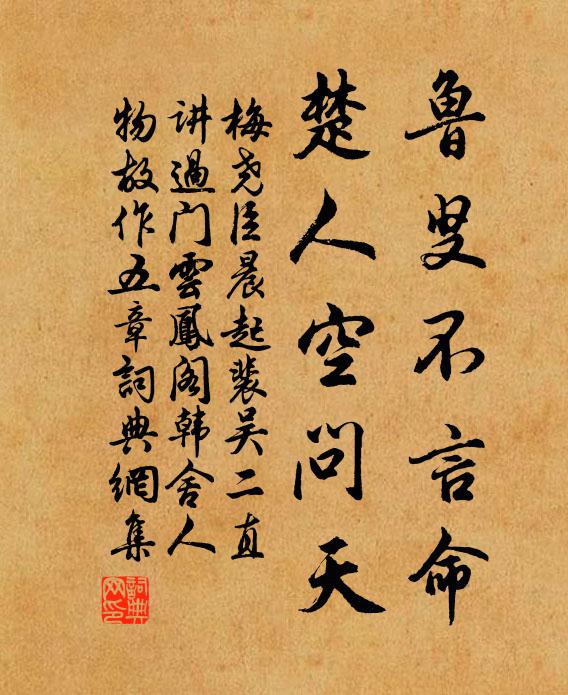 鲁叟不言命
楚人空问天
梅尧臣晨起裴吴二直
讲過门雲鳳阁韩舍人
物故作五章詞典網集
詞典
网印